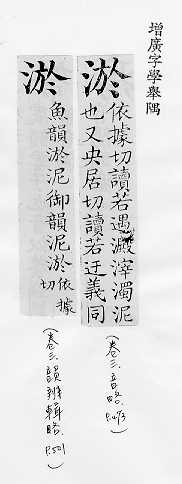 增廣字學舉隅
淤
依據切讀若遇澱滓濁泥
也又央居切讀若迂義同
(卷三、音略、
淤
魚韻淤泥御韻泥淤依據
切
(卷三、韻辨輯略、P.501)